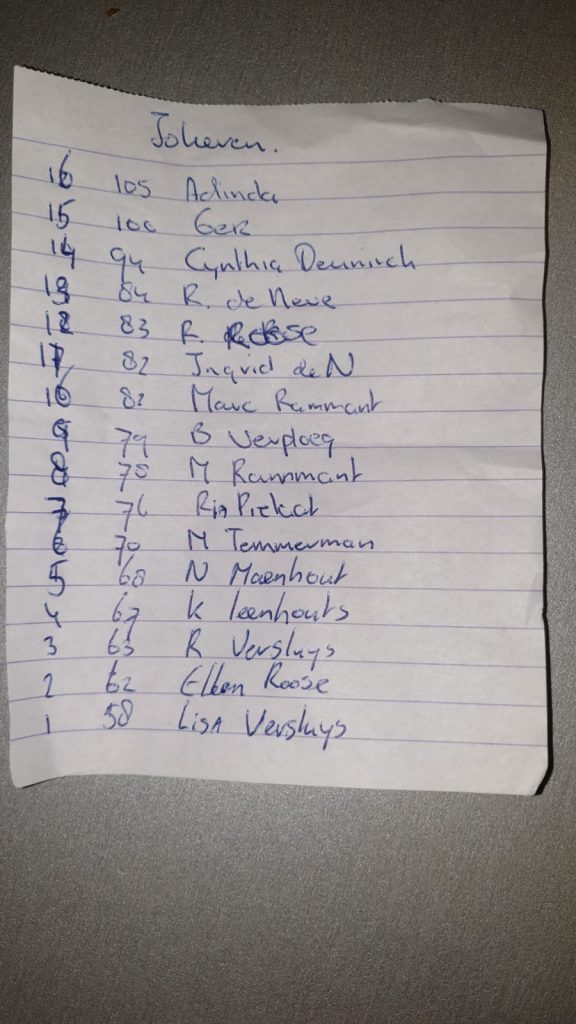 Jokeren.
16 105 Adinda
15 100 Ger
14 94 Cynthia
13 84 R. de Neve
12 83 R.
11 82 Ingrid de N
10 82 Marc Rammant
9 79 B Verploeg
8 78 M Rammant
7 76 Ria
6 70 M Temmerman
5 68 N Maenhout
4 67 K leenhouts
3 63 R Versluys
2 62 Ellen Roose
1 58 Lisa Versluys